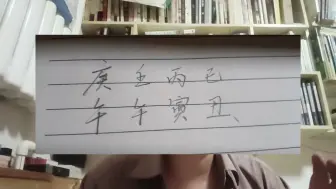 庚壬丙己
午午寅丑、